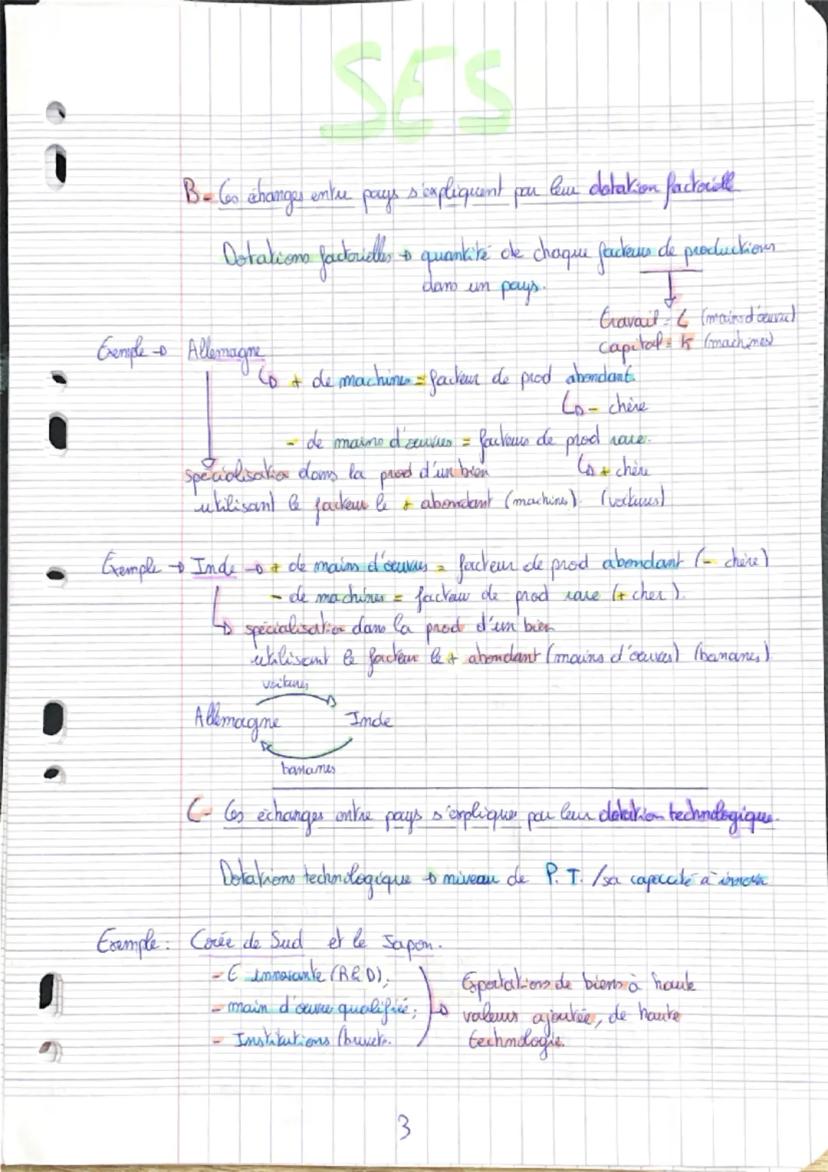 SES
B- Les échanges entre pays s'expliquent par leur dotation factorielle
Dotations factorielles → quantité de chaque facteurs de productions
dans un pays.
travail = L (mains d'œuvre)
capital = K (machines)
Exemple → Allemagne
↳ + de machines = facteur de prod abondant
↳ - chère
- de mains d'œuvres = facteurs de prod rare.
↳ + chère
spécialisation dans la prod d'un bien
utilisant le facteur le + abondant (machines). (voitures)
Exemple → Inde → + de mains d'œuvres = facteur de prod abondant (- chère)
- de machines = facteur de prod rare (+ cher).
↳ spécialisation dans la prod d'un bien
utilisant le facteur le + abondant (mains d'œuvres) (bananes)
voitures
Allemagne Inde
bananes
C- Les échanges entre pays s'explique par leur dotation technologique.
Dotations technologique → niveau de P.T. / sa capacité à innover
Exemple : Corée de Sud et le Japon.
- E innovante (R&D);
- main d'œuvre qualifiée;
- Institutions (brevet.
→ Exportations de biens à haute
valeurs ajoutée, de haute
technologie.
3